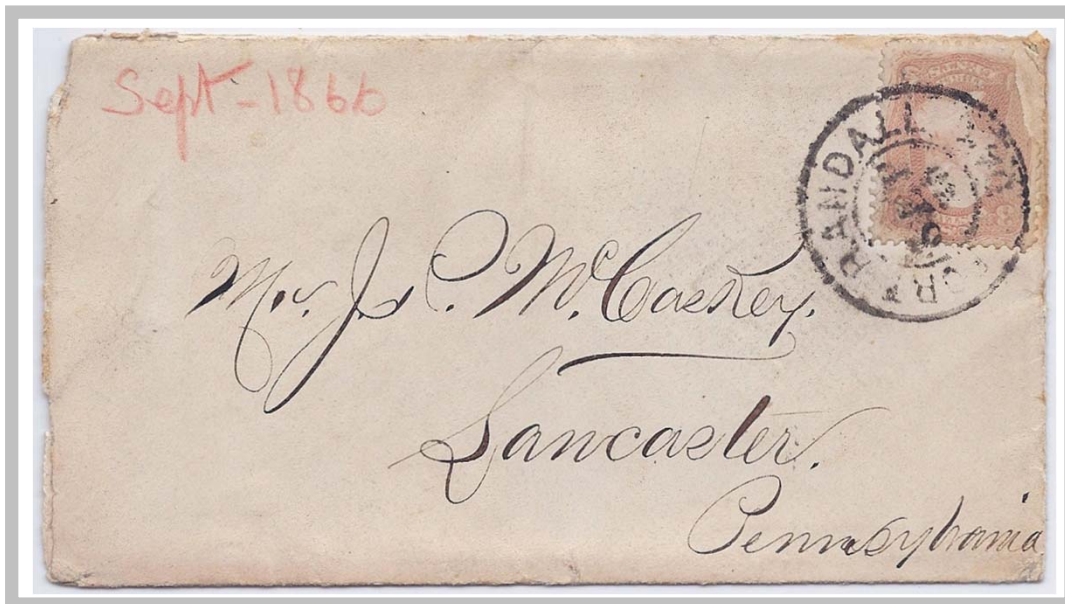 Sept - 1866
RANDALL
Mr. J. P. McCaskey.
Lancaster.
Pennsylvania